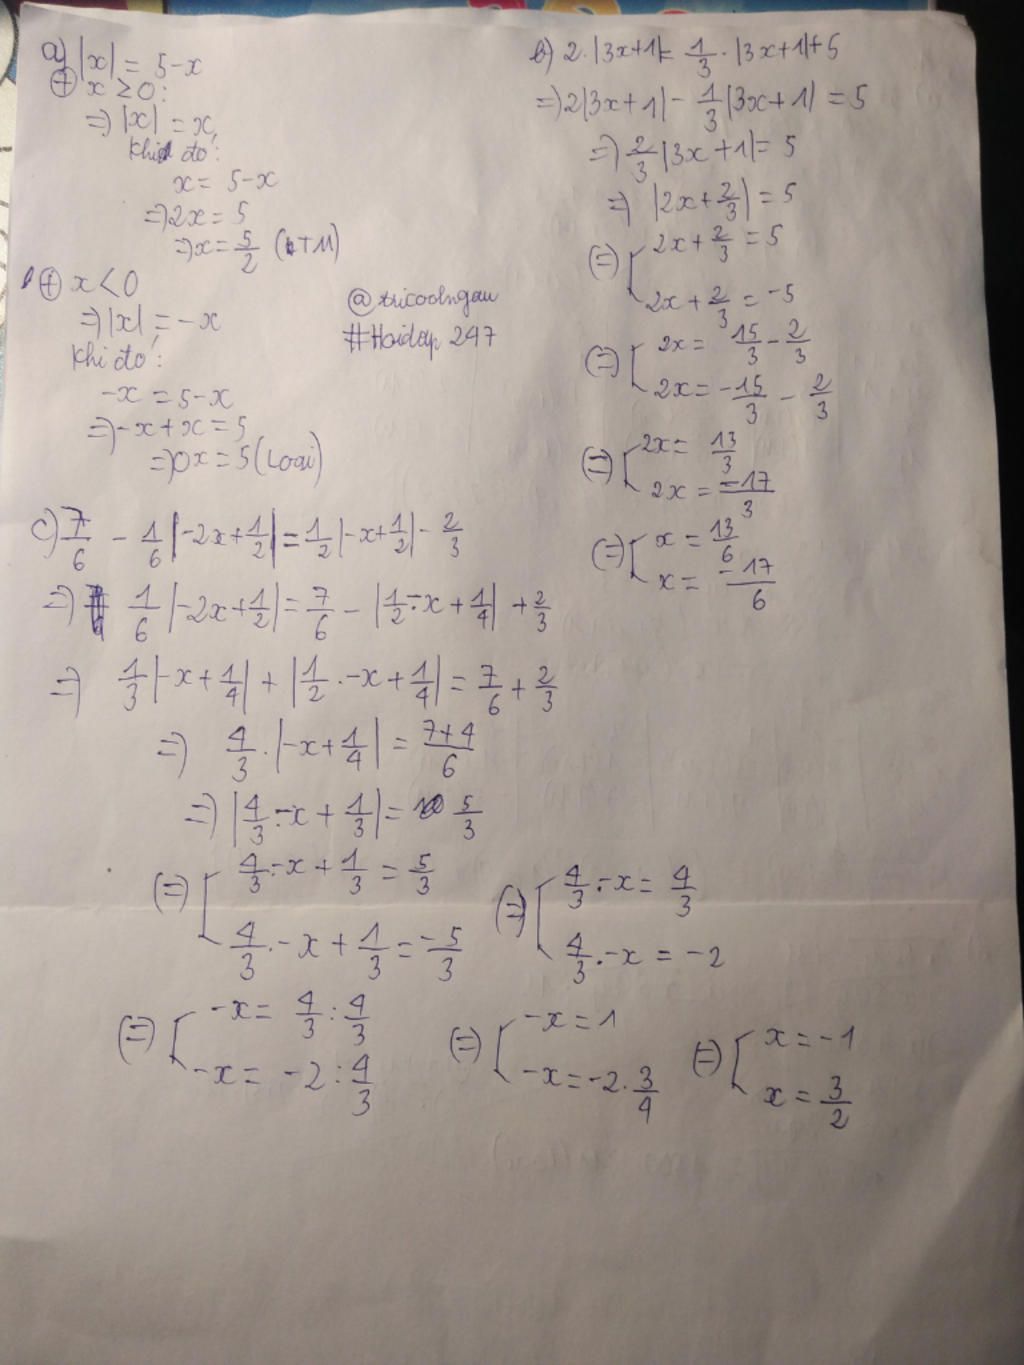 a) |x| = 5-x
⊕ x ≥ 0:
=> |x| = x
Khi đó:
x = 5-x
=> 2x = 5
=> x = 5/2 (tTM)
⊕ x < 0
=> |x| = -x
Khi đó:
-x = 5-x
=> -x + x = 5
=> 0x = 5 (Loại)
@tricoolngau
#Hoidap 247
b) 2.|3x+1| = 1/3 . |3x+1| + 5
=> 2|3x+1| - 1/3 |3x+1| = 5
=> 2/3 |3x+1| = 5
=> |2x + 2/3| = 5
(=) [ 2x + 2/3 = 5
2x + 2/3 = -5
(=) [ 2x = 15/3 - 2/3
2x = -15/3 - 2/3
(=) [ 2x = 13/3
2x = -17/3
(=) [ x = 13/6
x = -17/6
c) 7/6 - 1/6 |-2x + 1/2| = 1/2 |-x + 1/2| - 2/3
=> 1/6 |-2x + 1/2| = 7/6 - |1/2 . -x + 1/4| + 2/3
=> 1/3 |-x + 1/4| + |1/2 . -x + 1/4| = 7/6 + 2/3
=> 4/3 . |-x + 1/4| = 7+4/6
=> |4/3 . -x + 1/3| = 5/3
(=) [ 4/3 . -x + 1/3 = 5/3
4/3 . -x + 1/3 = -5/3
(=) [ 4/3 . -x = 4/3
4/3 . -x = -2
(=) [ -x = 4/3 : 4/3
-x = -2 : 4/3
(=) [ -x = 1
-x = -2 . 3/4
(=) [ x = -1
x = 3/2